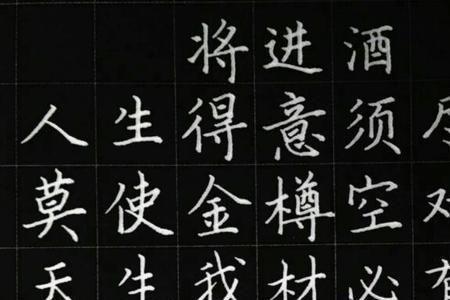 将进酒
人生得意须尽
莫使金樽空对
天生我材必有